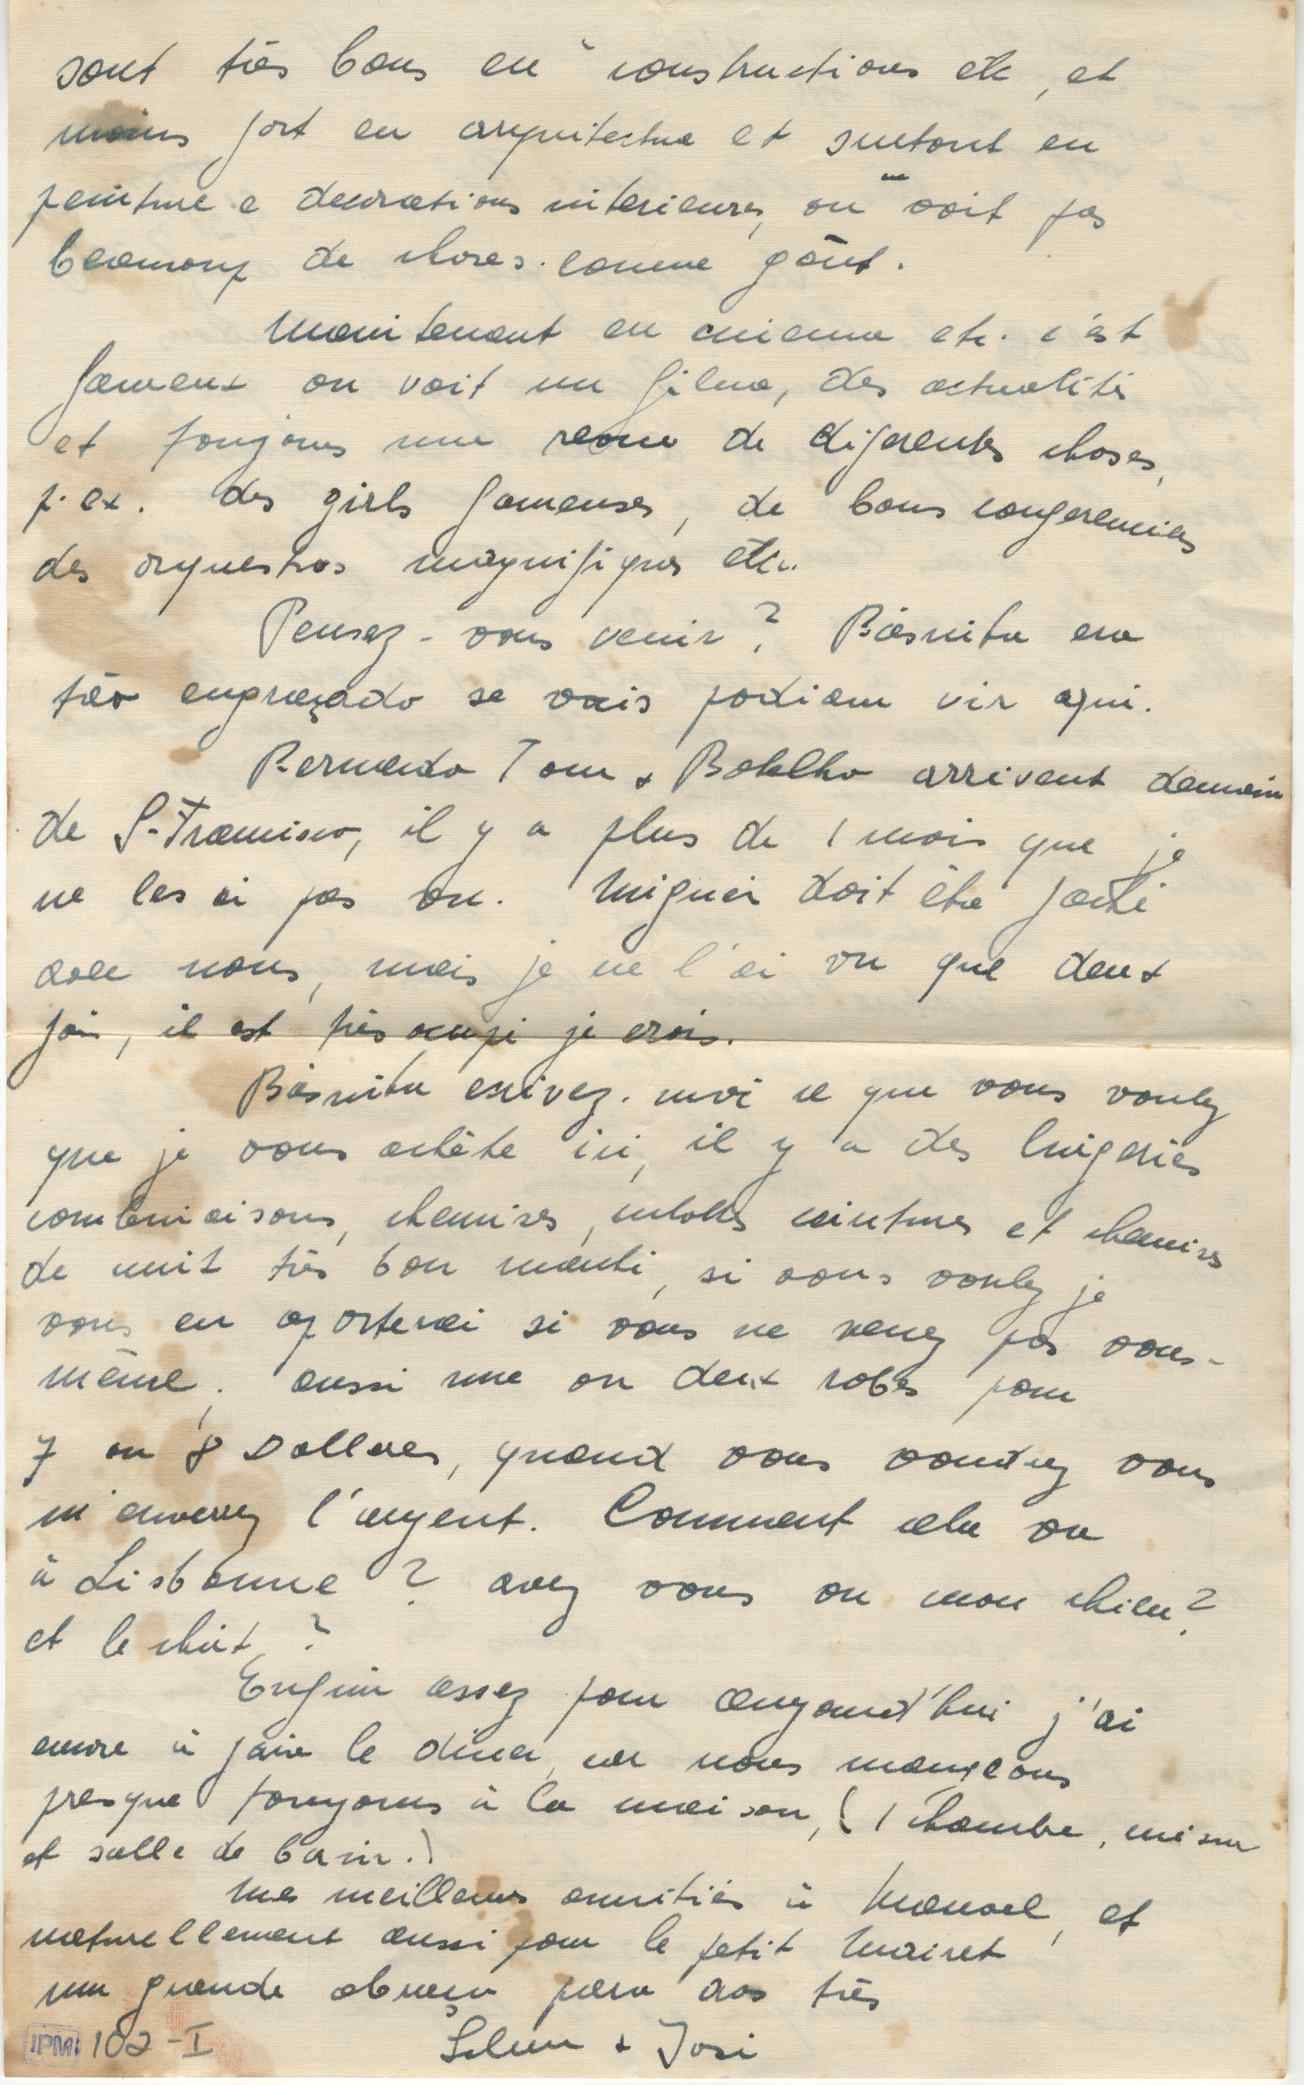 sont très bons en constructions etc, et
moins fort en arquitectue et surtout en
peinture e decorations interieures, on voit pas
beaucoup de choses comme goût.
Maintenant en cinema etc. c'est
fameux on voit un filme, des actualités
et toujours une revue de diferentes choses,
p. ex. des girls fameuses, de bons
des orquestras magnifiques etc.
Pensez-vous venir? era
tão engraçado se vocis podiam vir aqui.
Bernardo Tom + Botelho arrivent demain
de S-Francisco, il y a plus de 1 mois que je
ne les ai pas vu. doit être parti
avec nous, mais je ne l'ai vu que deux
fois, il est très ocupé je crois.
ecrivez-moi ce que vous voulez
que je vous achète ici, il y a des lingeries
combinaisons, chemises, culottes ceintures et chemises
de nuit très bon marché, si vous voulez je
vous en aporterai si vous ne venez pas vous-
même, aussi une ou deux robes pour
7 ou 8 Dollares, quand vous voudrez vous
m'enverrez l'argent. Comment cela va
à Lisbonne? avez vous vu mon chien?
et le chat?
Enfin assez pour aujourd'hui j'ai
encore à faire le diner, car nous mangeons
presque toujours à la maison, (1 chambre, cuisine
et salle de bain.)
Mes meilleurs amitiés à Manoel, et
naturellement aussi pour le petit
um grande abraço para vos très
+ José
IPM 102-I